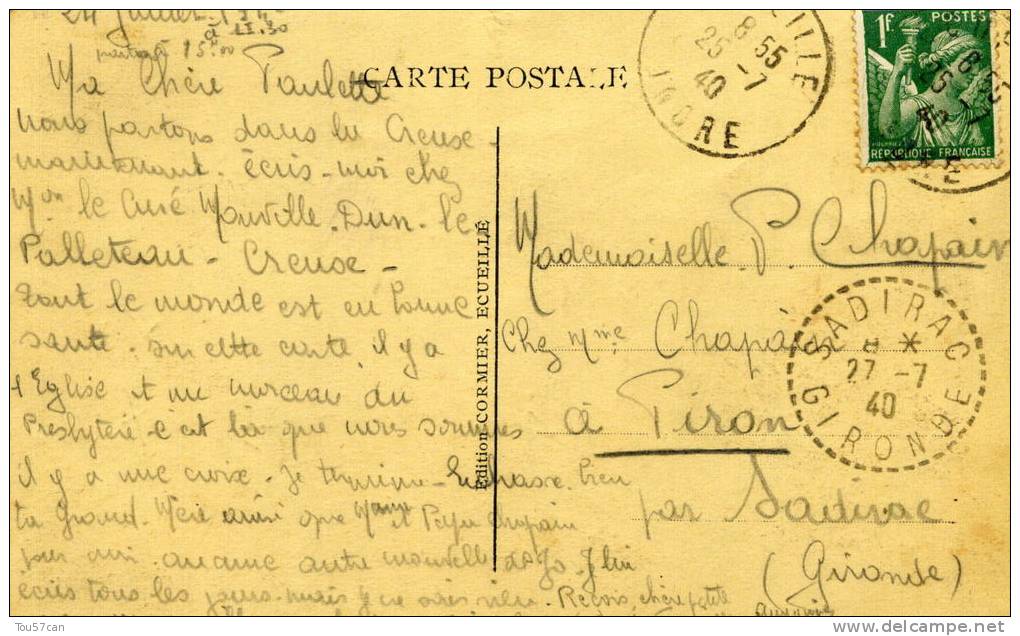 24 Juillet
à 11.30
15h00
CARTE POSTALE
Ma Chère Paulette
nous partons dans la Creuse
maintenant. écris-moi chez
Mon le Curé Dun-le
Palleteau - Creuse -
Tout le monde est en bonne
santé. sur cette carte il y a
l'Eglise et un morceau du
Presbytère c'est là que nous sommes
il y a une croix. Je termine - Embrasse bien
ta Grand. Mère ainsi que Mme et Chapain
pour moi. aucune autre nouvelle de Jo. Je lui
écris tous les jours mais ne vien. Reçois, chère petite
Edition CORMIER, ECUEILLÉ
8 55
25 -7
40
INDRE
1F POSTES
RÉPUBLIQUE FRANÇAISE
Mademoiselle P. Chapain
Chez Mme Chapain
à Piron
par Sadirac
(Gironde)
SADIRAC
27 -7
40
GIRONDE
Tou57can
http://www.delcampe.net